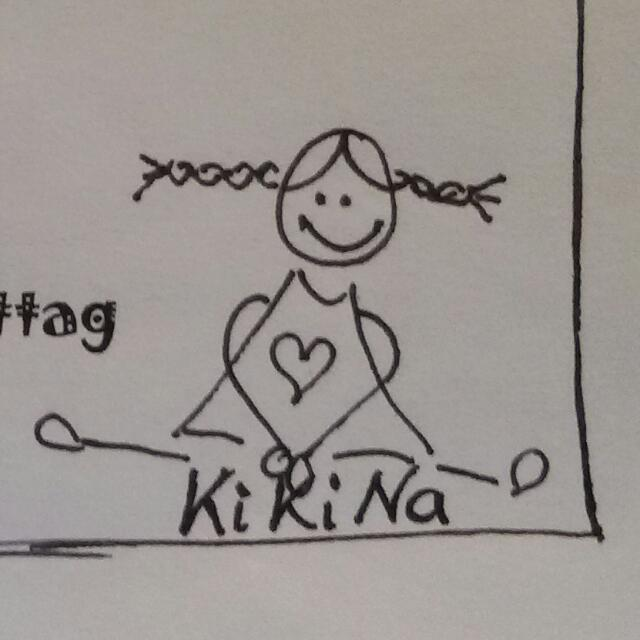 ttag
KiKiNa